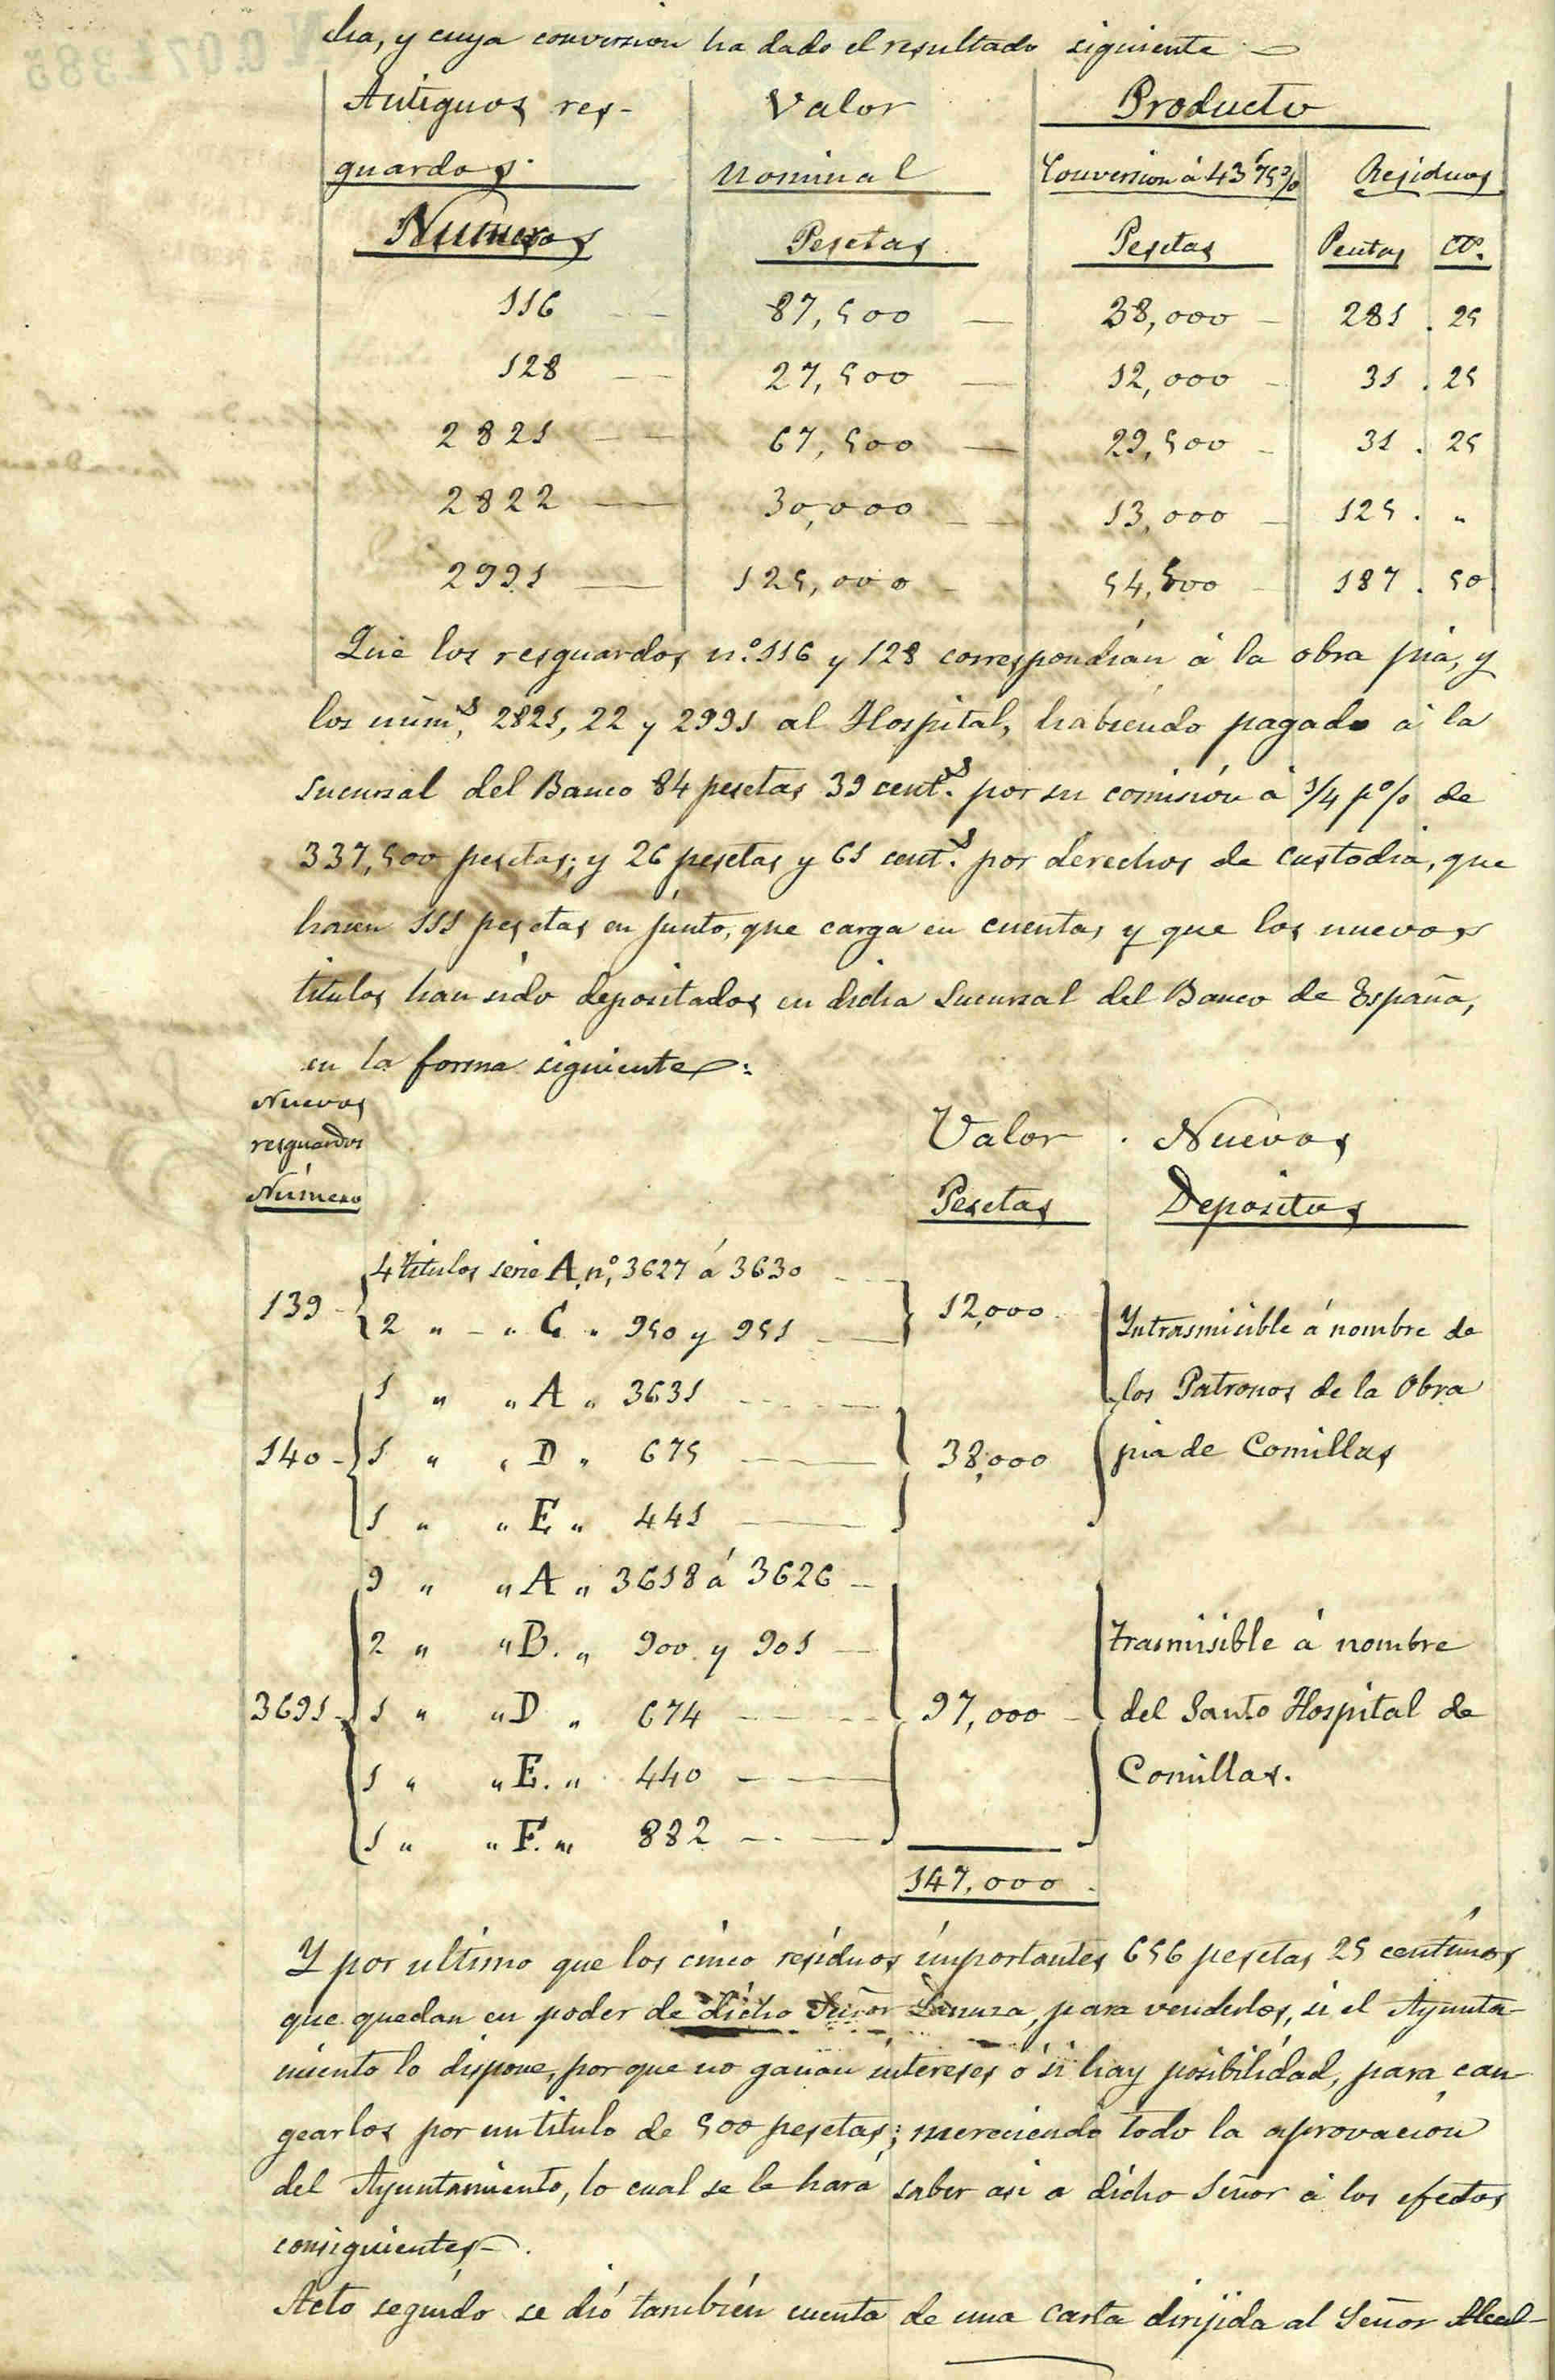 cha, y cuya conversion ha dado el resultado siguiente
Antiguos res- Valor Producto
guardos. nominal Conversion á 43'75% Residuos
Numeros Pesetas Pesetas Pesetas Cts.
116 87,500 38,000 281 . 25
128 27,500 12,000 31 . 25
2821 67,500 29,500 31 . 25
2822 30,000 13,000 125 . "
2991 125,000 54,500 187 . 50
Que los resguardos n.º 116 y 128 correspondian á la obra pia, y
los núms, 2821, 22 y 2991 al Hospital, habiendo pagado á la
sucursal del Banco 84 pesetas 39 cents. por su comisión á 1/4 p% de
337,500 pesetas; y 26 pesetas y 61 cents. por derechos de custodia, que
hacen 111 pesetas en junto, que carga en cuentas y que los nuevos
titulos han sido depositados en dicha Sucursal del Banco de España,
en la forma siguiente:
Nuevos
resguardos Valor . Nuevos
Número Pesetas Depositos
4 titulos serie A. nº, 3627 á 3630
139 2 " - " C " 950 y 951 12,000 Intrasmisible á nombre de
1 " " A " 3631 los Patronos de la Obra
140 1 " " D " 675 38,000 pia de Comillas
1 " " E " 441
9 " " A " 3618 á 3626
2 " " B. " 900 y 901 trasmisible á nombre
3691 1 " " D " 674 97,000 del Santo Hospital de
1 " " E. " 440 Comillas.
1 " " F. " 882
147,000
Y por ultimo que los cinco residuos importantes 656 pesetas 25 centimos
que quedan en poder de dicho Señor Lanuza, para venderlos, si el Ayunta-
miento lo dispone, por que no ganan intereses ó si hay posibilidad, para can
gearlos por un titulo de 500 pesetas; mereciendo todo la aprovacion
del Ayuntamiento, lo cual se le hará saber asi a dicho Señor á los efectos
consiguientes.
Acto seguido se dió también cuenta de una carta dirijida al Señor Alcal-